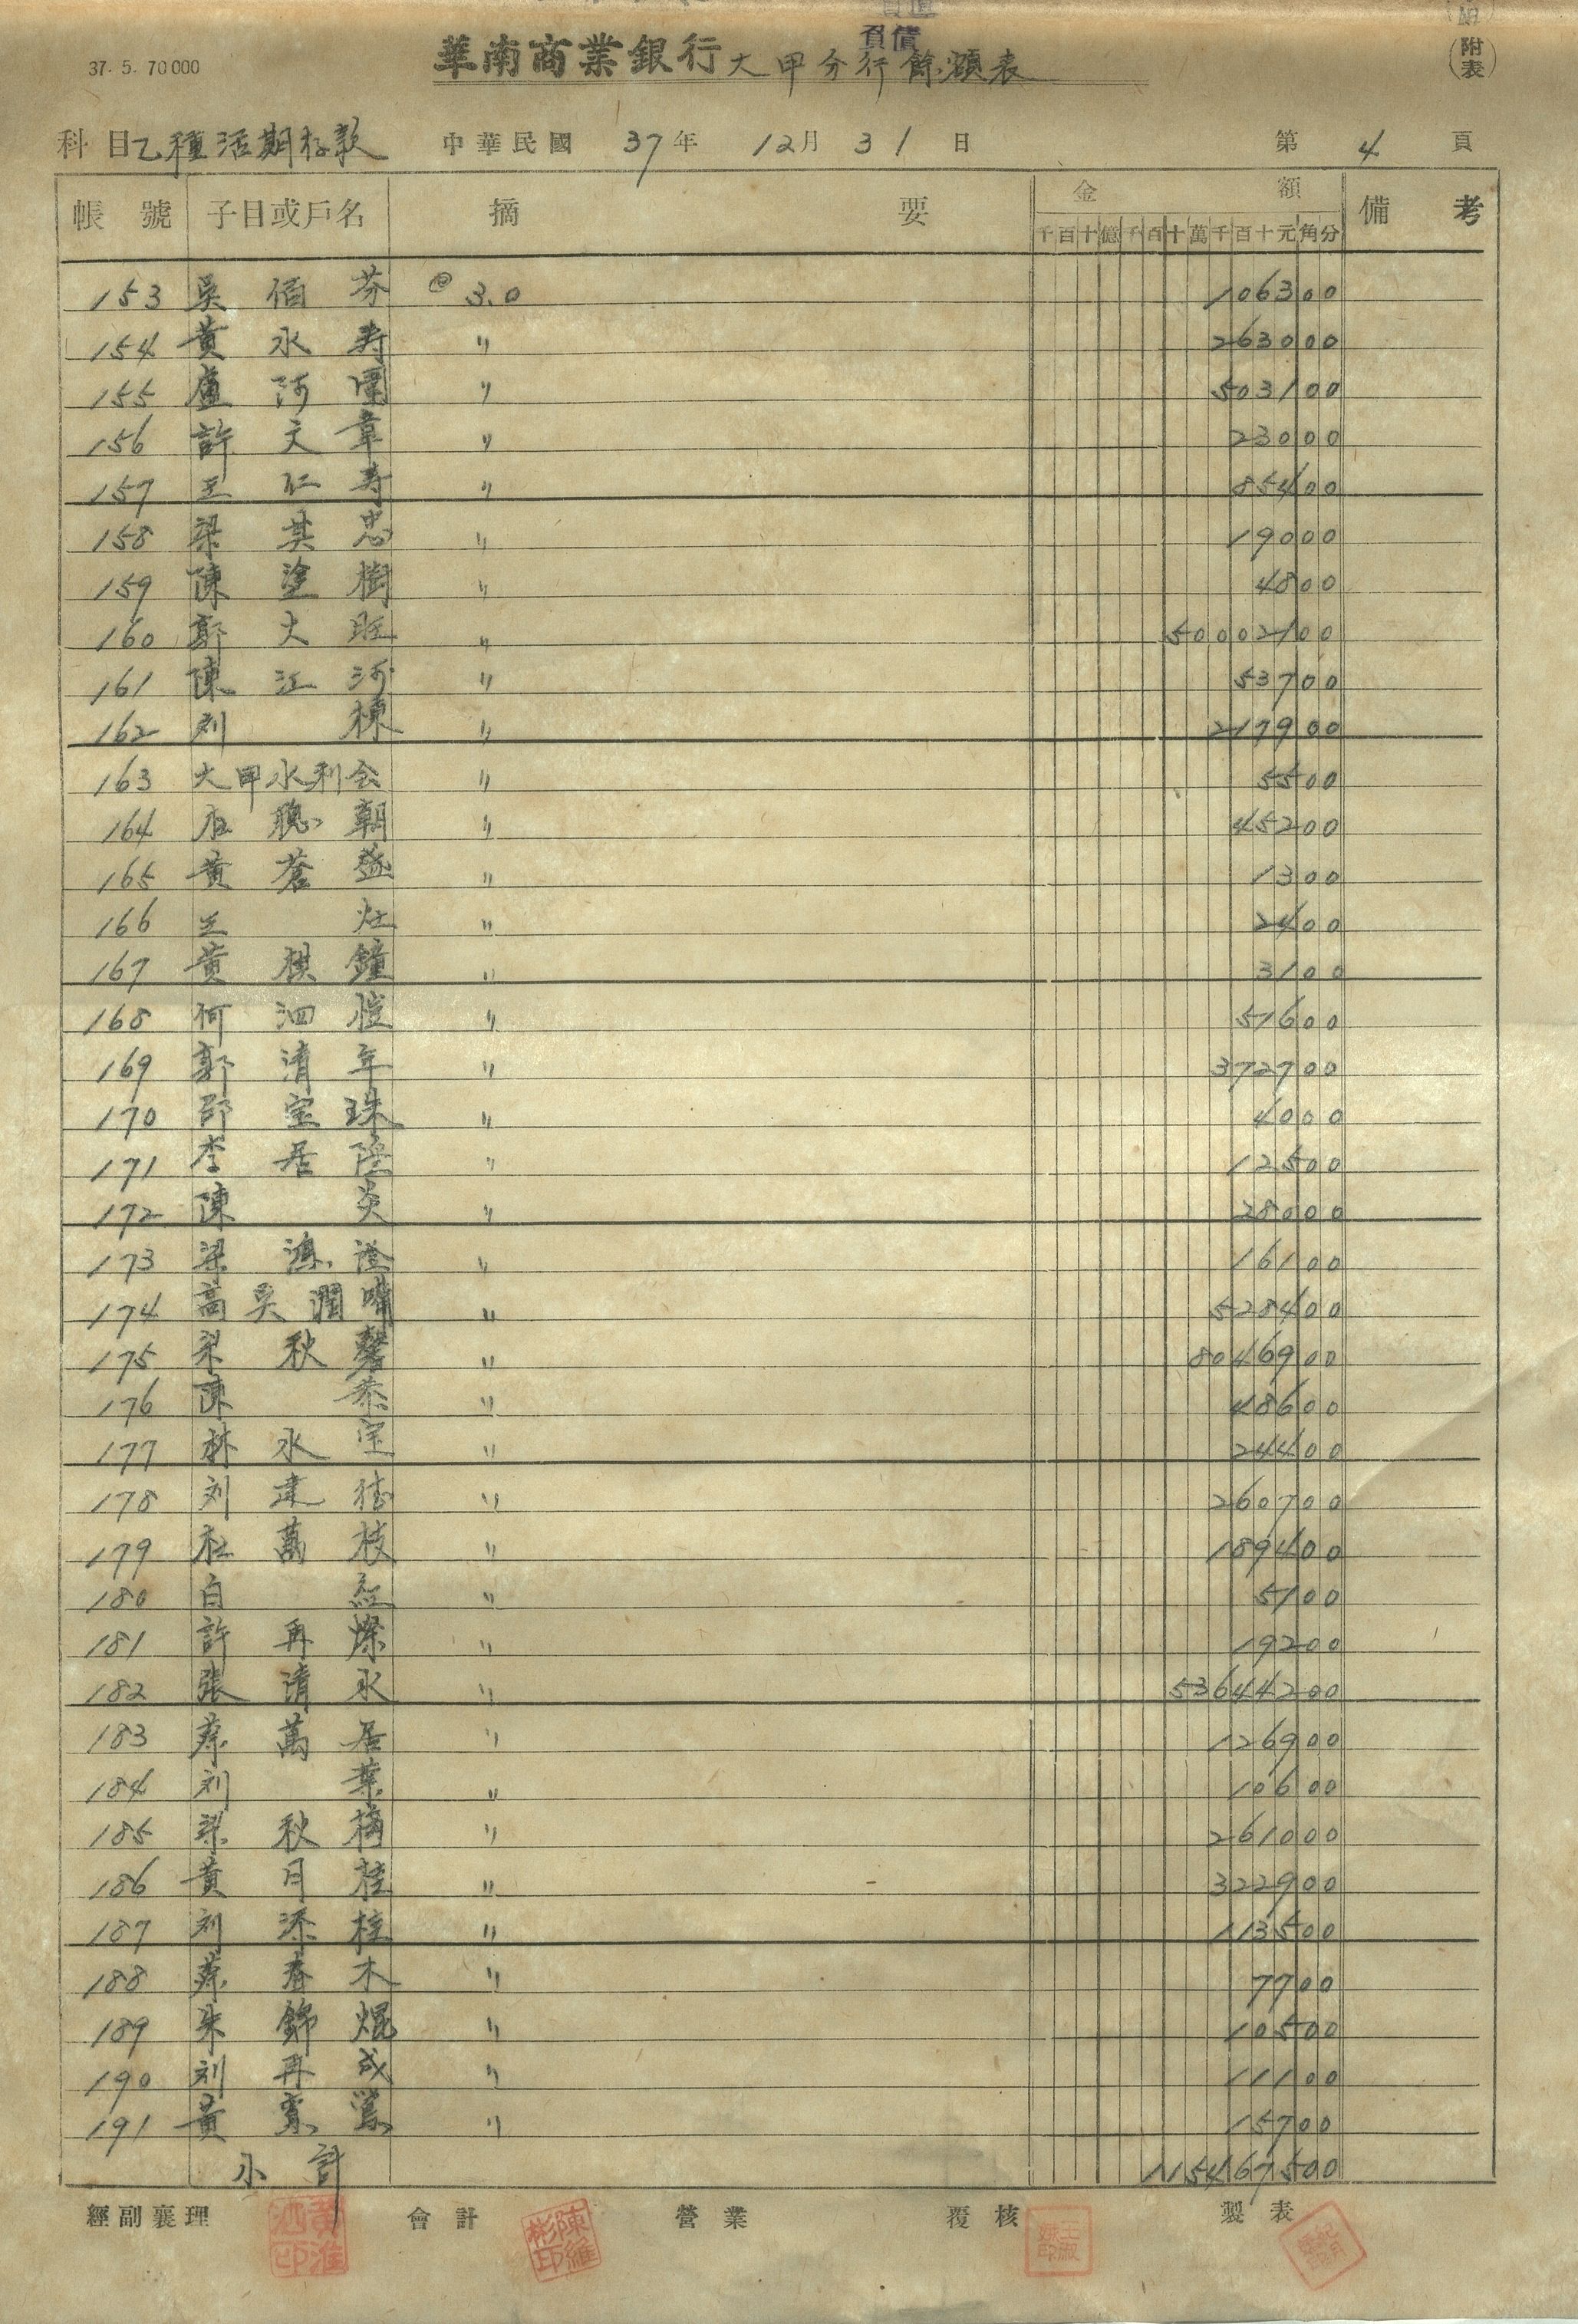 37. 5. 70000
華南商業銀行大甲分行餘額表
負債
(附表)
科目乙種活期存款 中華民國 37年 12月 31日 第 4 頁
帳號 子目或戶名 摘要 金額 備考
千百十億千百十萬千百十元角分
153 吳佰芬 @3.0 106300
154 黃永寿 〃 263000
155 盧河 〃 503100
156 許文章 〃 23000
157 王仁寿 〃 85400
158 梁其忠 〃 19000
159 陳塗樹 〃 4800
160 郭大旺 〃 50002100
161 陳江河 〃 53700
162 刘棟 〃 217900
163 大甲水利会 〃 5500
164 杜聰朝 〃 45200
165 黃蒼盛 〃 1300
166 王灶 〃 2400
167 黃棋鐘 〃 3100
168 何泗 〃 51600
169 郭清年 〃 372700
170 邵宝珠 〃 4000
171 李居陞 〃 12500
172 陳炎 〃 28000
173 梁鴻澄 〃 16100
174 高吳潤 〃 528400
175 梁秋馨 〃 8046900
176 陳恭 〃 48600
177 林水宝 〃 24400
178 刘建德 〃 260700
179 杜萬枝 〃 189400
180 白紅 〃 5100
181 許再燦 〃 19200
182 張清水 〃 53644200
183 蔡萬居 〃 126900
184 刘葉 〃 10600
185 梁秋梅 〃 261000
186 黃月桂 〃 322900
187 刘添柱 〃 113500
188 蔡春木 〃 7700
189 朱錦焜 〃 10500
190 刘再成 〃 11100
191 黃鴛 〃 15700
小計 115467500
經副襄理 會計 營業 覆核 製表
陳維彬印